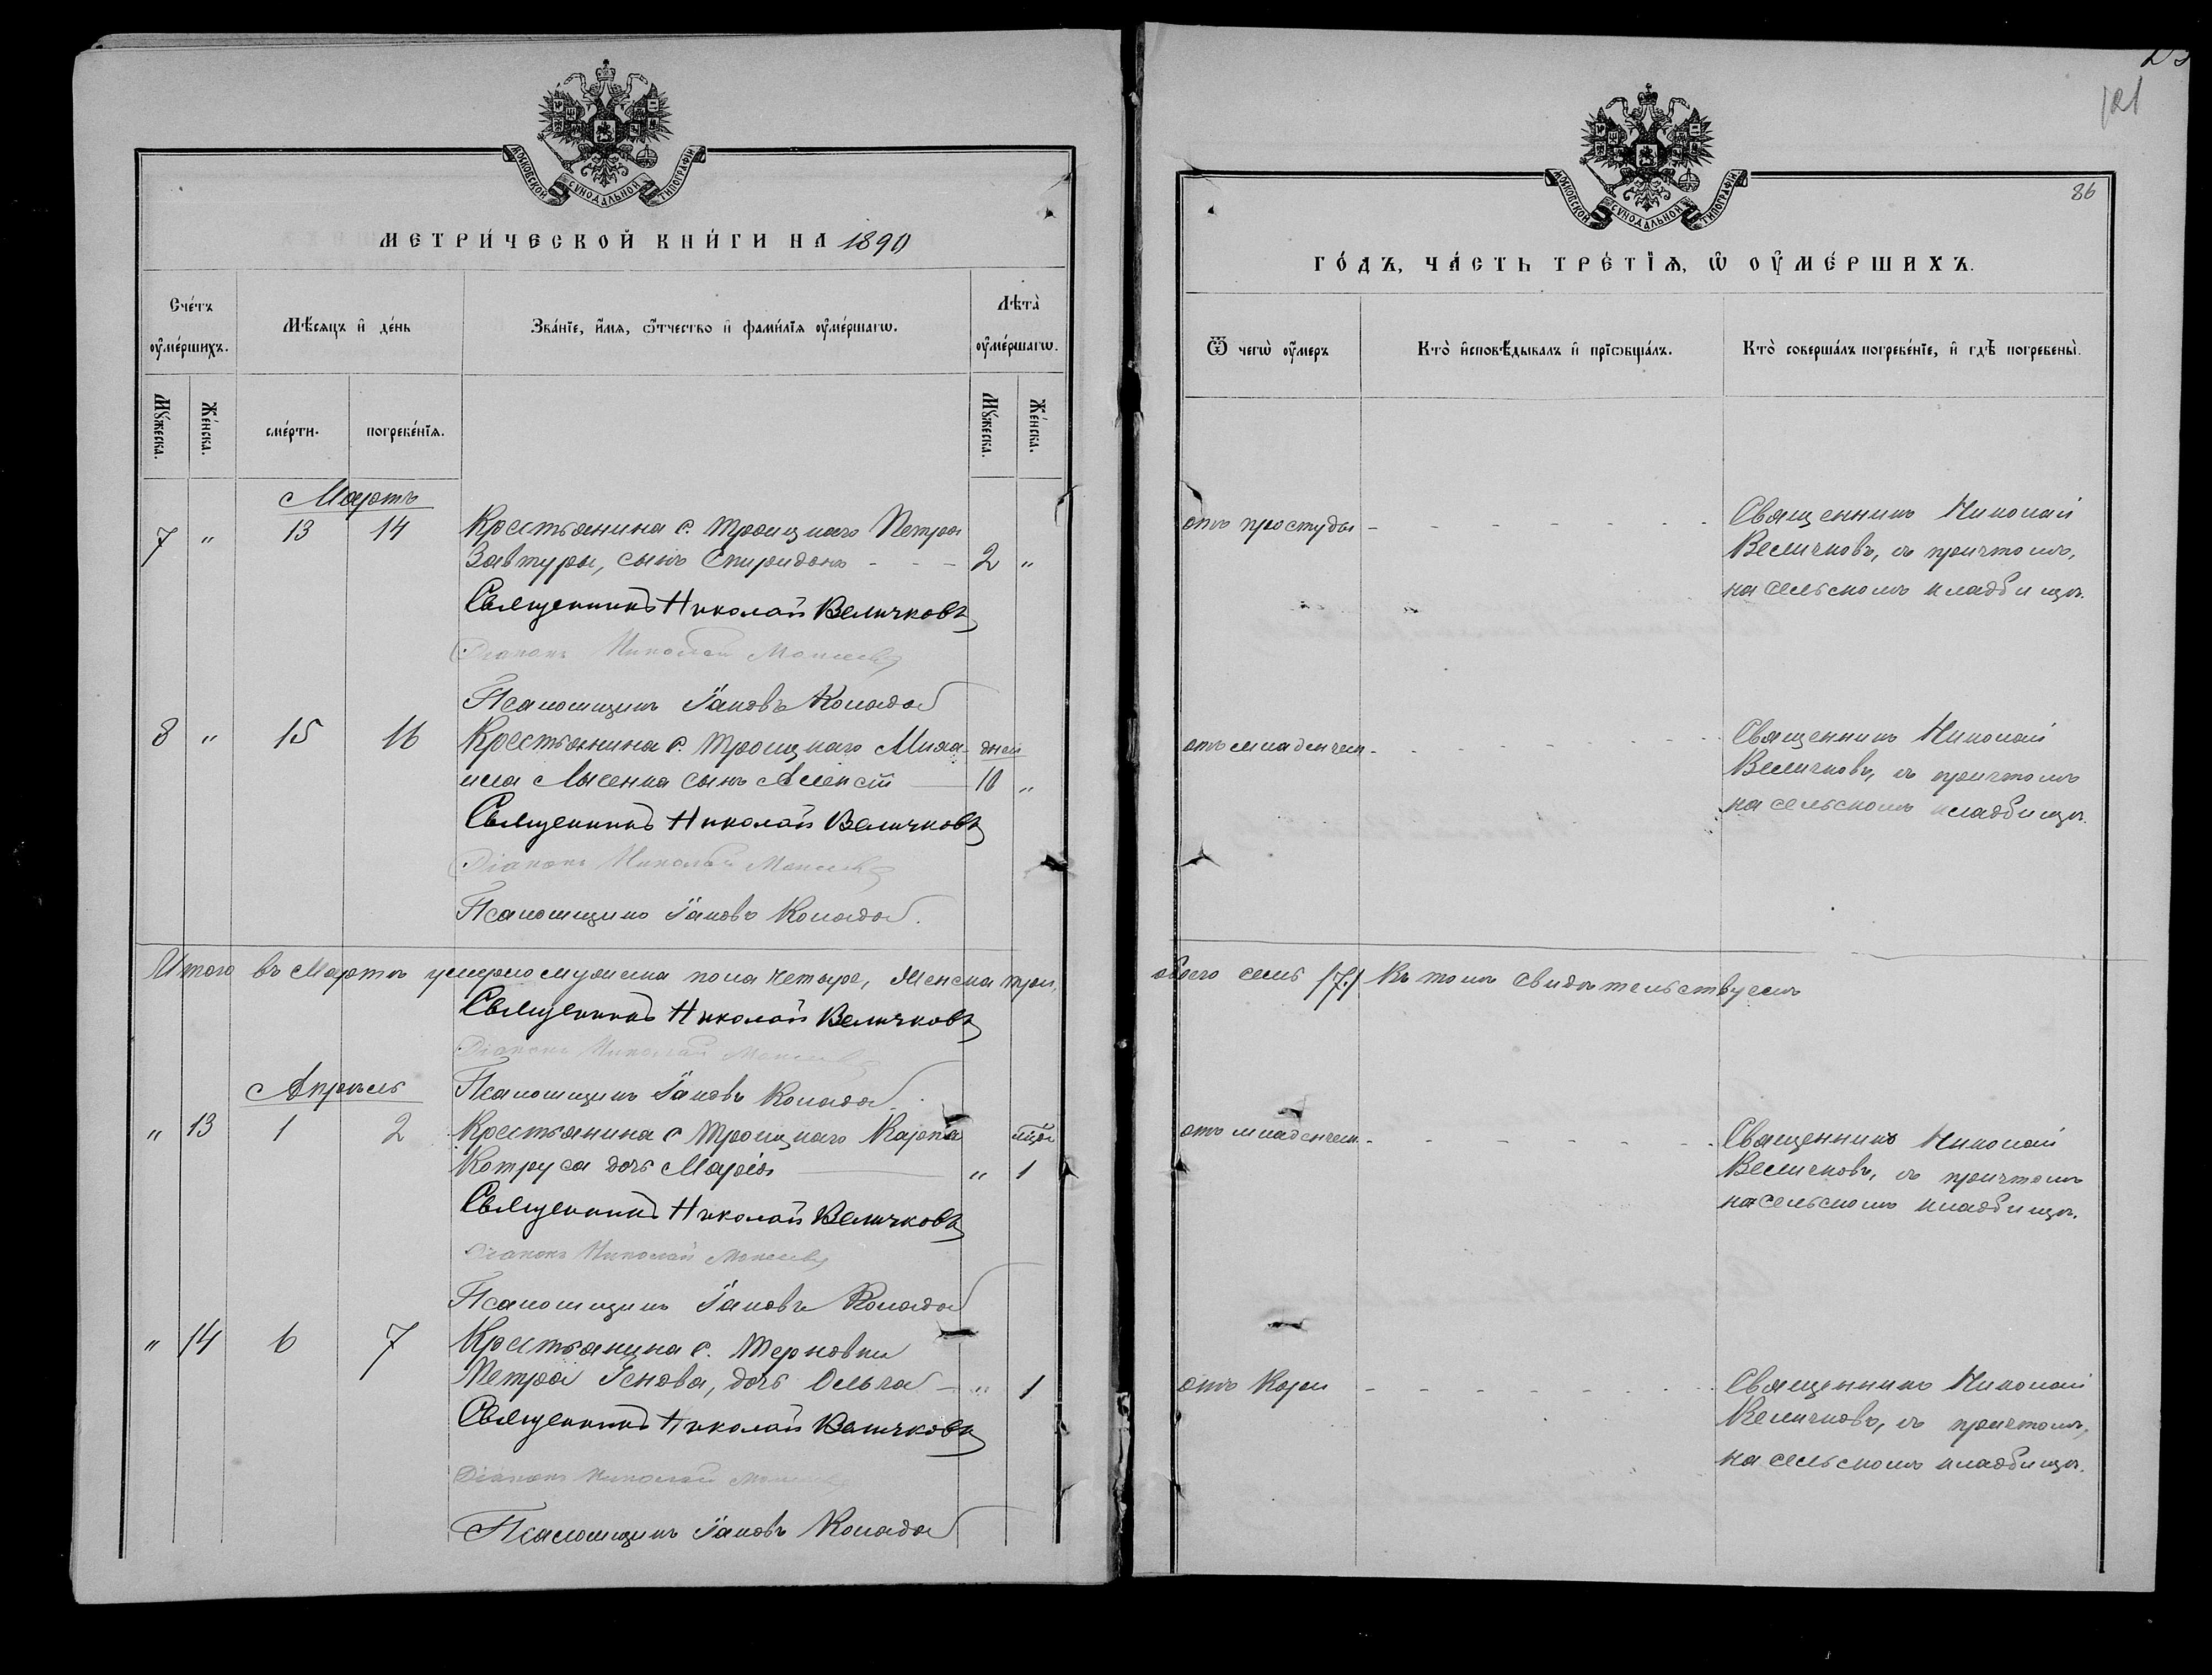 МОСКОВСКОЙ СѴНОДАЛЬНОЙ ТИПОГРАФІИ
МЕТРИ́ЧЕСКОЙ КНИ́ГИ НА 1890
Сче́тъ ᲂу҆ме́ршихъ.
Мѣ́сяцъ и҆ де́нь
Зва́нїе, и҆́мя, ѻ҆́тчество и҆ фами́лїя ᲂу҆ме́ршагѡ.
Лѣта̀ ᲂу҆ме́ршагѡ.
Мꙋ́жеска.
Же́нска.
сме́рти.
погребе́нїя.
Мꙋ́жеска.
Же́нска.
Мартъ
7 " 13 14 Крестьянина с. Троицкаго Петра
Завтуры, сынъ Спиридонъ - - - 2 "
Священникъ Николай Величковъ
Діаконъ Николай Моисеевъ
Псаломщикъ Іаковъ Колядa
8 " 15 16 Крестьянина с. Троицкаго Миха- дней
ила Лысенка сынъ Алексій 10 "
Священникъ Николай Величковъ
Діаконъ Николай Моисеевъ
Псаломщикъ Іаковъ Коляда.
Итого въ Мартѣ умерло мужеска пола четыре, женска три,
Священникъ Николай Величковъ
Діаконъ Николай Моисеевъ
Апрѣль
Псаломщикъ Іаковъ Коляда.
" 13 1 2 Крестьянина с Троицкаго Карпа
Котруса дочь Марія " 1
Священникъ Николай Величковъ
Діаконъ Николай Моисеевъ
Псаломщикъ Іаковъ Коляда
" 14 6 7 Крестьянина с. Терновки
Петра Генова, дочь Ольга - " 1
Священникъ Николай Величковъ
Діаконъ Николай Моисеевъ
Псаломщикъ Іаковъ Коляда
121
МОСКОВСКОЙ СѴНОДАЛЬНОЙ ТИПОГРАФІИ
86
ГО́ДЪ, ЧА́СТЬ ТРЕ́ТЇѦ, Ѽ ОУ҆МЕ́РШИХЪ.
Ѿ чегѡ̀ ᲂу҆́меръ
Кто̀ и҆сповѣ́дывалъ и҆ прїѡбща́лъ.
Кто̀ соверша́лъ погребе́нїе, и҆ гдѣ̀ погребены̀.
отъ простуды - - - - - - - Священникъ Николай
Величковъ, съ причтомъ,
на сельскомъ кладбищѣ.
отъ младенчес. - - - - - - - Священникъ Николай
Величковъ, съ причтомъ
на сельскомъ кладбищѣ.
обоего семь /7./ Въ томъ свидѣтельствуемъ
отъ младенчес. - - - - - - - Священникъ Николай
Величковъ, съ причтомъ
на сельскомъ кладбищѣ.
отъ Кори - - - - - - - Священникъ Николай
Величковъ, съ причтомъ,
на сельскомъ кладбищѣ.